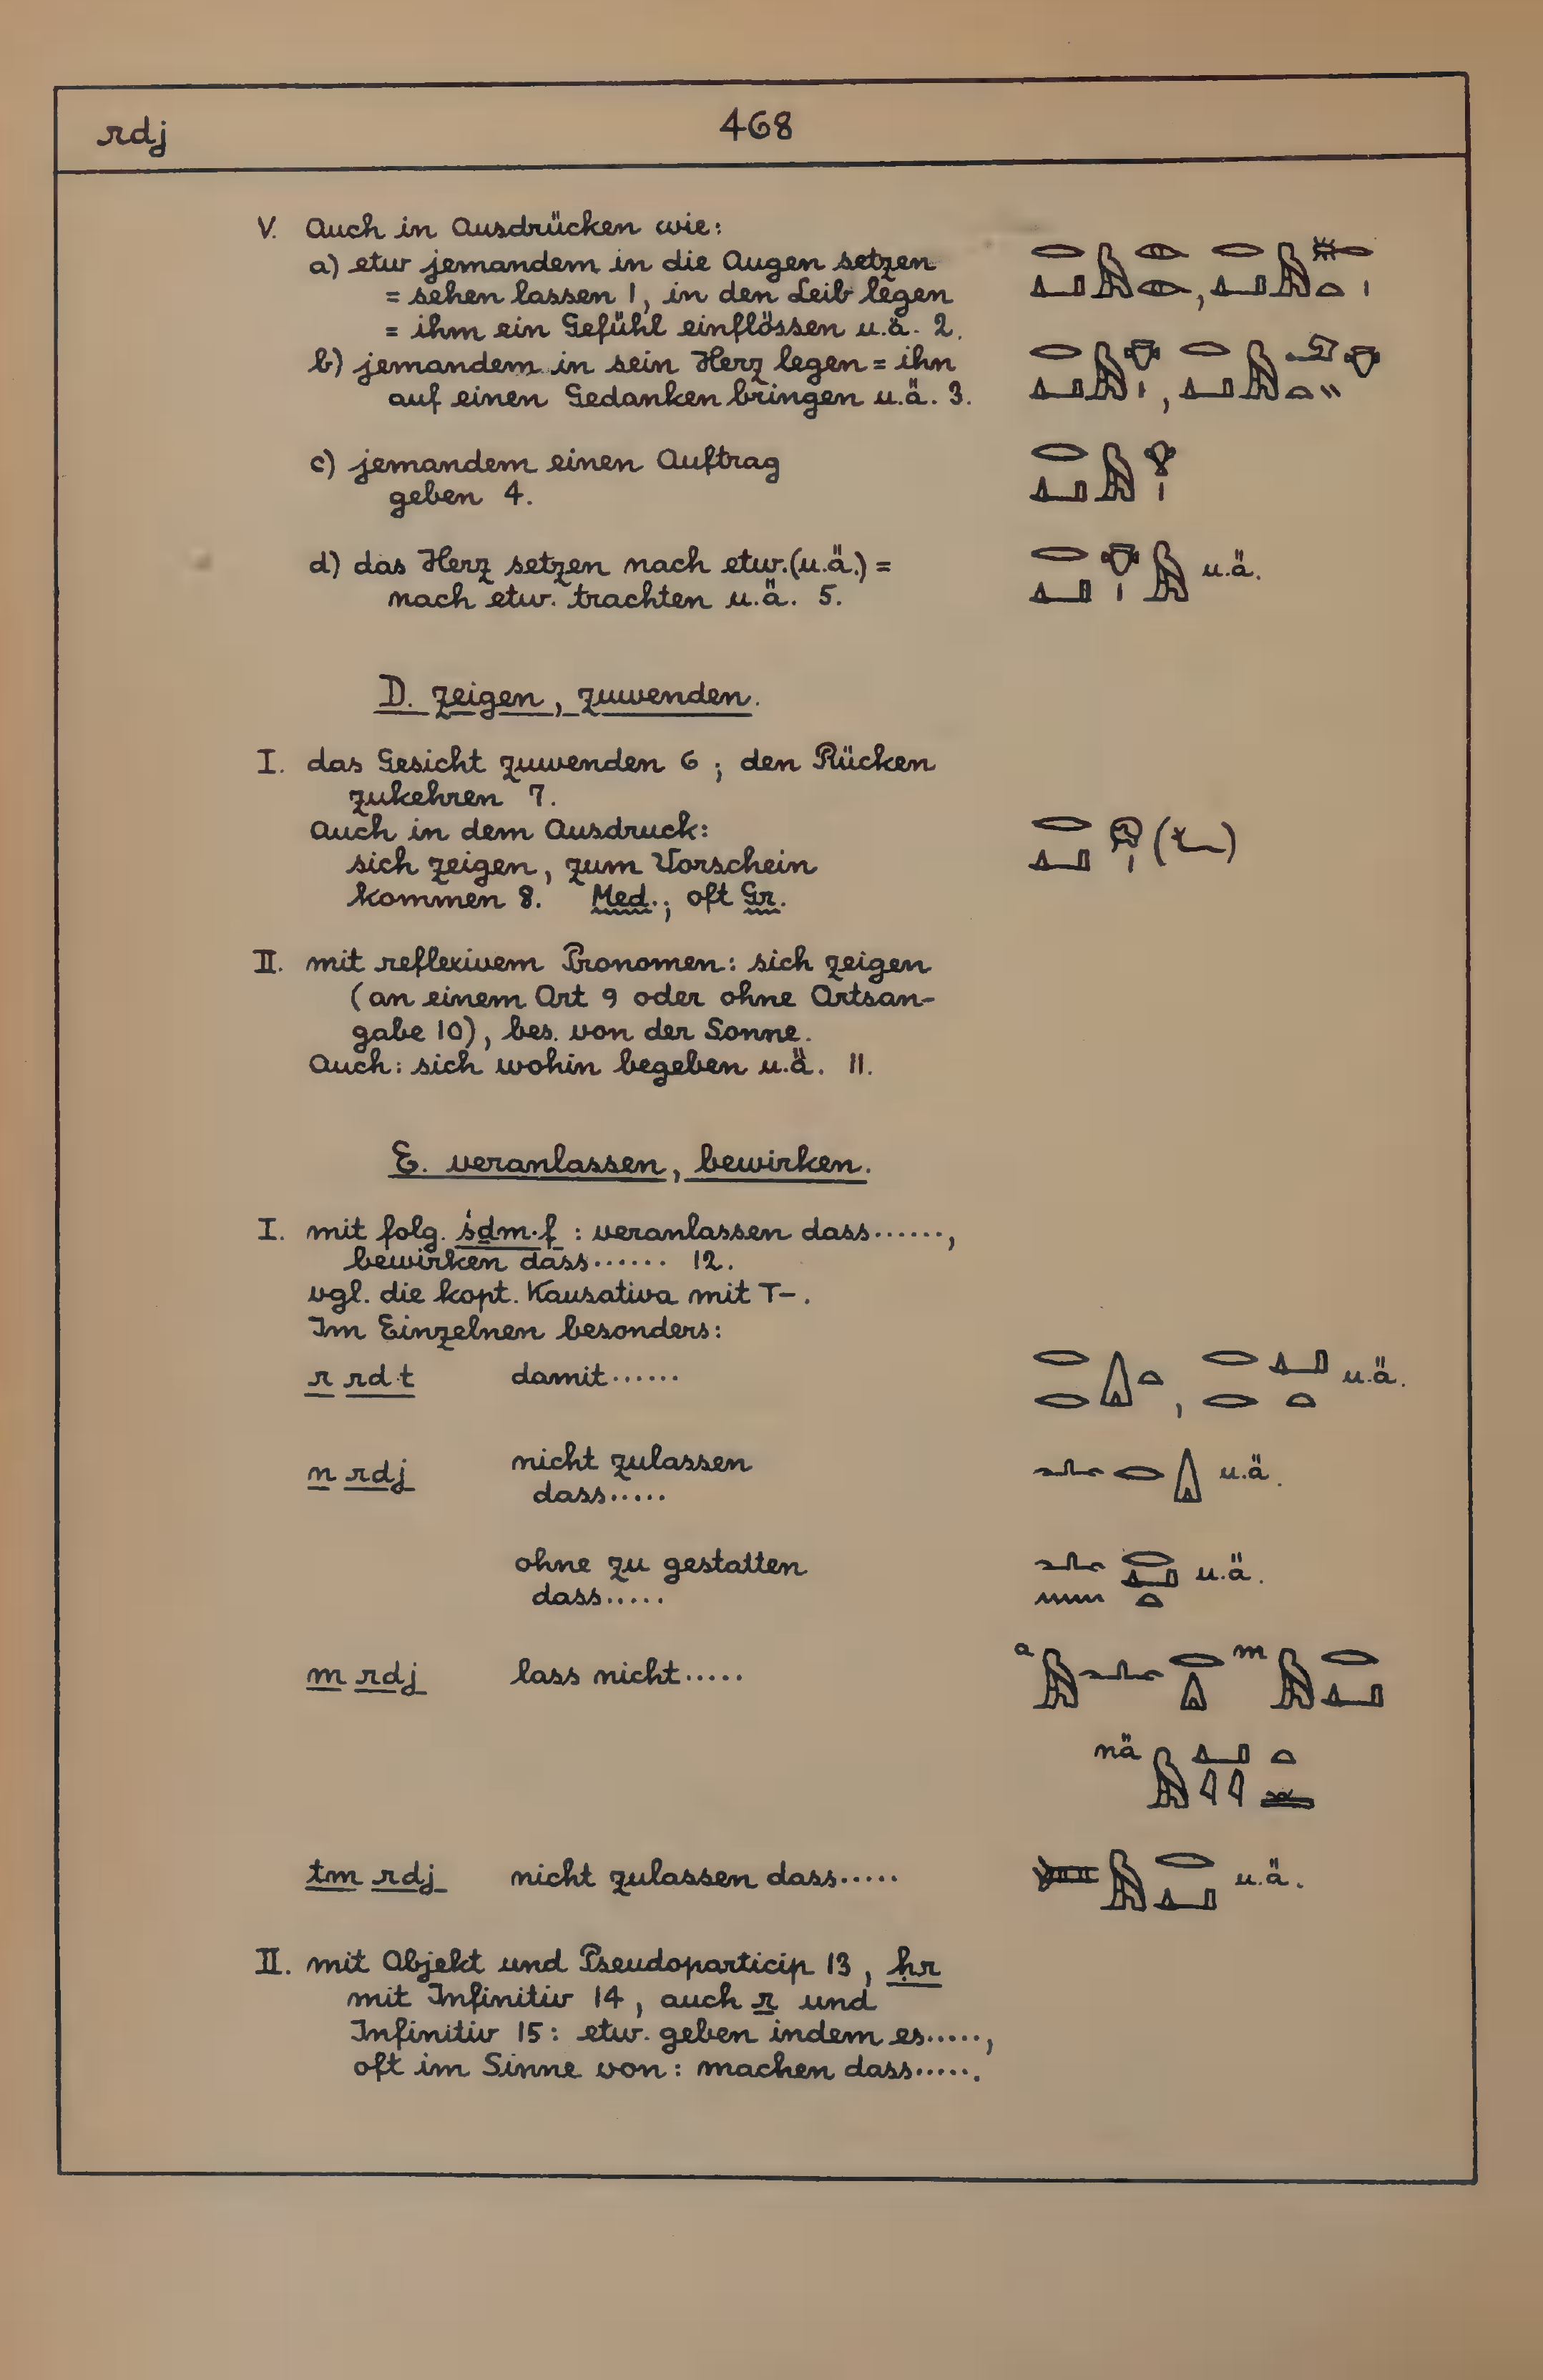 rdj 468
V. Auch in Ausdrücken wie:
a) etw jemandem in die Augen setzen
= sehen lassen 1, in den Leib legen
= ihm ein Gefühl einflössen u.ä. 2.
b) jemandem in sein Herz legen = ihn
auf einen Gedanken bringen u.ä. 3.
c) jemandem einen Auftrag
geben 4.
d) das Herz setzen nach etw. (u.ä.) = u.ä.
nach etw. trachten u.ä. 5.
D. zeigen, zuwenden.
I. das Gesicht zuwenden 6 ; den Rücken
zukehren 7.
Auch in dem Ausdruck:
sich zeigen, zum Vorschein
kommen 8. Med.; oft Gr.
II. mit reflexivem Pronomen: sich zeigen
(an einem Ort 9 oder ohne Ortsan-
gabe 10), bes. von der Sonne.
Auch: sich wohin begeben u.ä. 11.
E. veranlassen, bewirken.
I. mit folg. śḏm·f : veranlassen dass......,
bewirken dass...... 12.
vgl. die kopt. Kausativa mit T-.
Im Einzelnen besonders:
r rd·t damit...... u.ä.
n rdj nicht zulassen u.ä.
dass.....
ohne zu gestatten u.ä.
dass.....
m rdj lass nicht..... a m
nä
tm rdj nicht zulassen dass..... u.ä.
II. mit Objekt und Pseudoparticip 13, ḥr
mit Infinitiv 14, auch r und
Infinitiv 15: etw. geben indem es.....,
oft im Sinne von: machen dass......